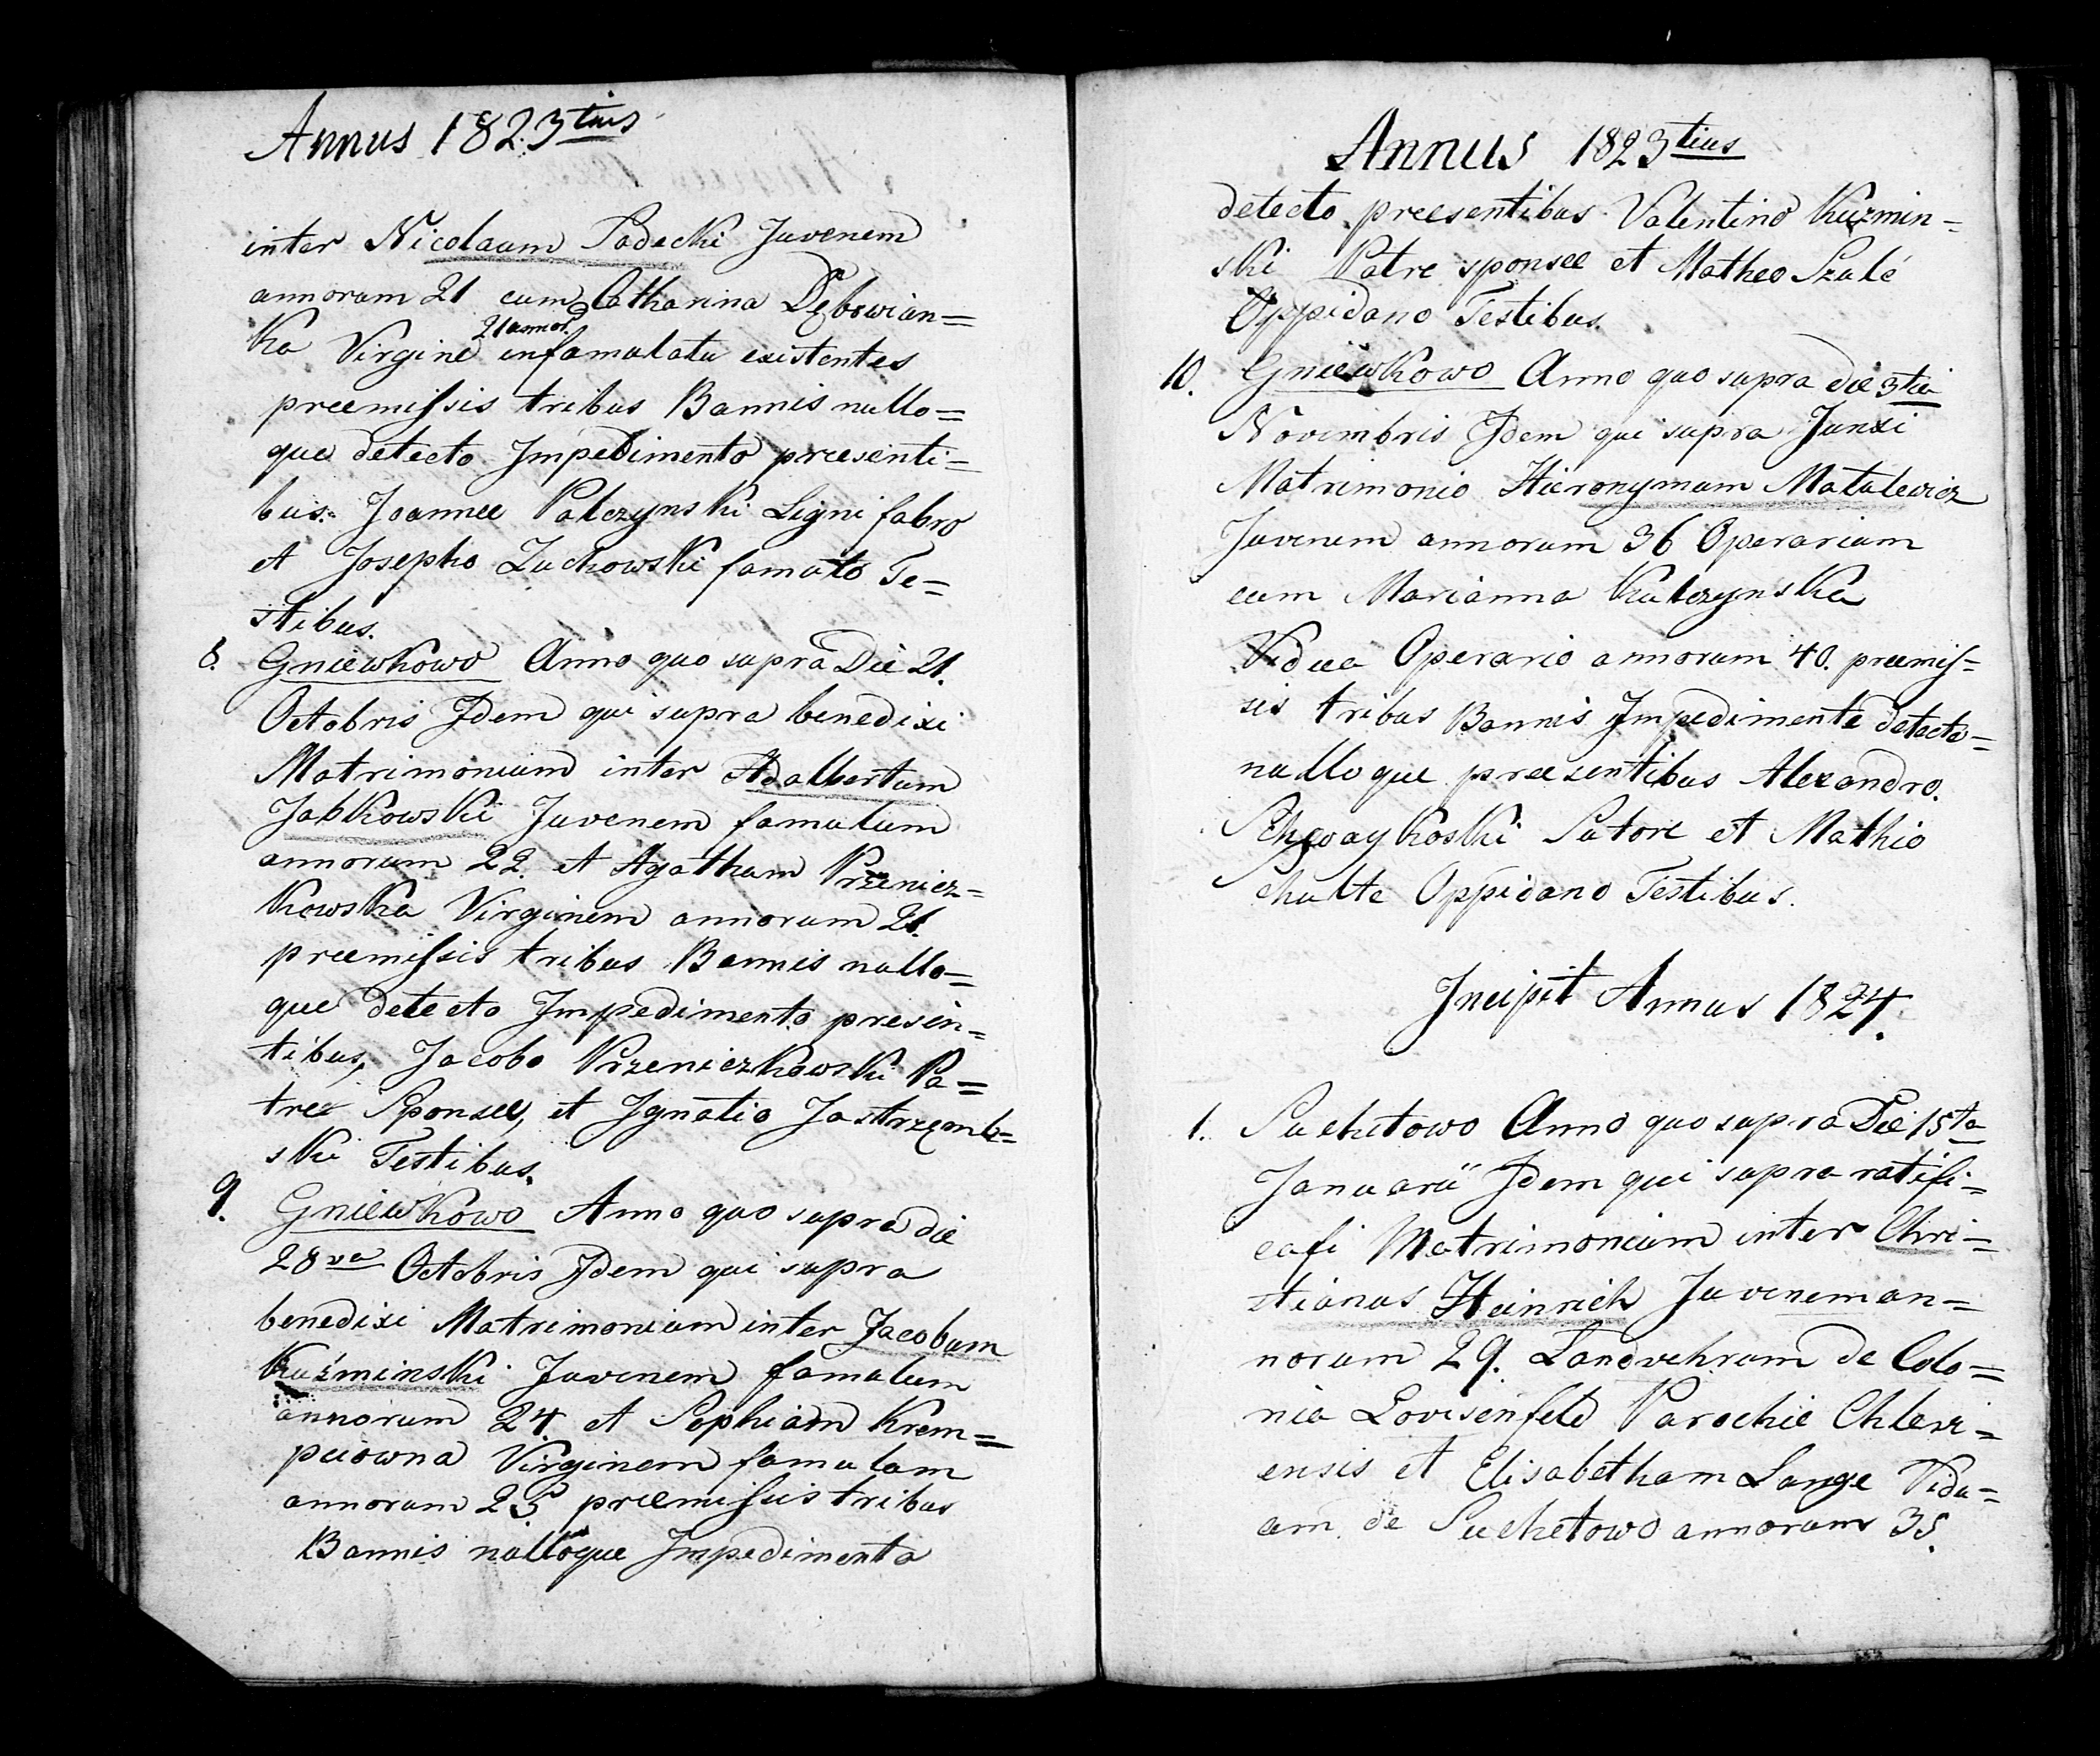 Annus 1823tius
inter Nicolaum Sadecki Juvenem
annorum 21 cum Catharina Dębowian=
ka Virgine 21 annor. in famulatu existentes
praemissis tribus Bannis nullo=
que detecto Impedimento praesenti=
bus. Joanne Palczynski Ligni fabro
et Josepho Zuchowski famato Te=
stibus.
8. Gniewkowo Anno quo supra Die 21.
Octobris Idem qui supra benedixi
Matrimonium inter Adalbertum
Jabkowski Juvenem famulum
annorum 22. et Agatham Przenicz=
kowska Virginem annorum 21.
praemissis tribus Bannis nullo=
que detecto Impedimento presen=
tibus, Jacobo Przeniczkowski Pa=
tre Sponsae, et Ignatio Jastrzęmb=
ski Testibus.
9. Gniewkowo Anno quo supra die
28va Octobris Idem qui supra
benedixi Matrimonium inter Jacobum
Kuźminski Juvenem famulum
annorum 24. et Sophiam Krem=
peiowna Virginem famulam
annorum 25 praemissis tribus
Bannis nulloque Impedimento
Annus 1823tius
detecto praesentibus Valentino Kuzmin=
ski Patre sponsae et Matheo Szulc
Oppidano Testibus.
10. Gniewkowo Anno quo supra die 3tia
Novembris Idem qui supra Junxi
Matrimonio Hieronymum Matalewicz
Juvenem annorum 36 Operarium
cum Marianna Kulczynska
Vidua Operario annorum 40. praemis=
sis tribus Bannis Impedimento detecto=
nulloque praesentibus Alexandro.
Sutore et Mathio
Schulte Oppidano Testibus.
Incipit Annus 1824.
1. Suchatowo Anno quo supra Die 15ta
Januarii Idem qui supra ratifi=
cafi Matrimonium inter Chri=
stianus Heinrich Juvenem an=
norum 29. Landvehrum de Colo=
nia Lovisenfeld Parochie Chlewi=
ensis et Elisabetham Lange Vidu=
am de Suchetowo annorum 35.